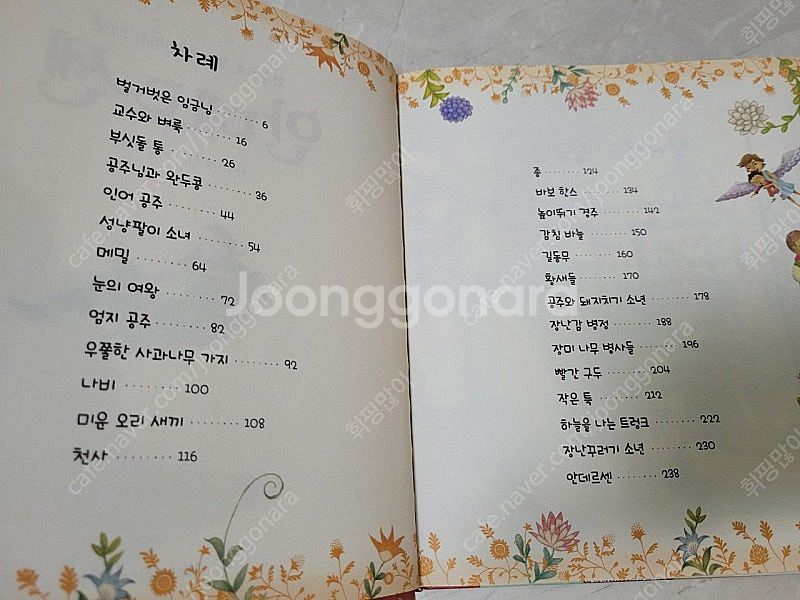 차례
벌거벗은 임금님 ········ 6
교수와 벼룩 ········ 16
부싯돌 통 ········ 26
공주님과 완두콩 ········ 36
인어 공주 ········ 44
성냥팔이 소녀 ········ 54
메밀 ········ 64
눈의 여왕 ········ 72
엄지 공주 ········ 82
우쭐한 사과나무 가지 ········ 92
나비 ········ 100
미운 오리 새끼 ········ 108
천사 ········ 116
종 ········ 124
바보 한스 ········ 134
높이뛰기 경주 ········ 142
감침 바늘 ········ 150
길동무 ········ 160
황새들 ········ 170
공주와 돼지치기 소년 ········ 178
장난감 병정 ········ 188
장미 나무 병사들 ········ 196
빨간 구두 ········ 204
작은 툭 ········ 212
하늘을 나는 트렁크 ········ 222
장난꾸러기 소년 ········ 230
안데르센 ········ 238
Joonggonara
cafe.naver.com/joonggonara
휘핑많이